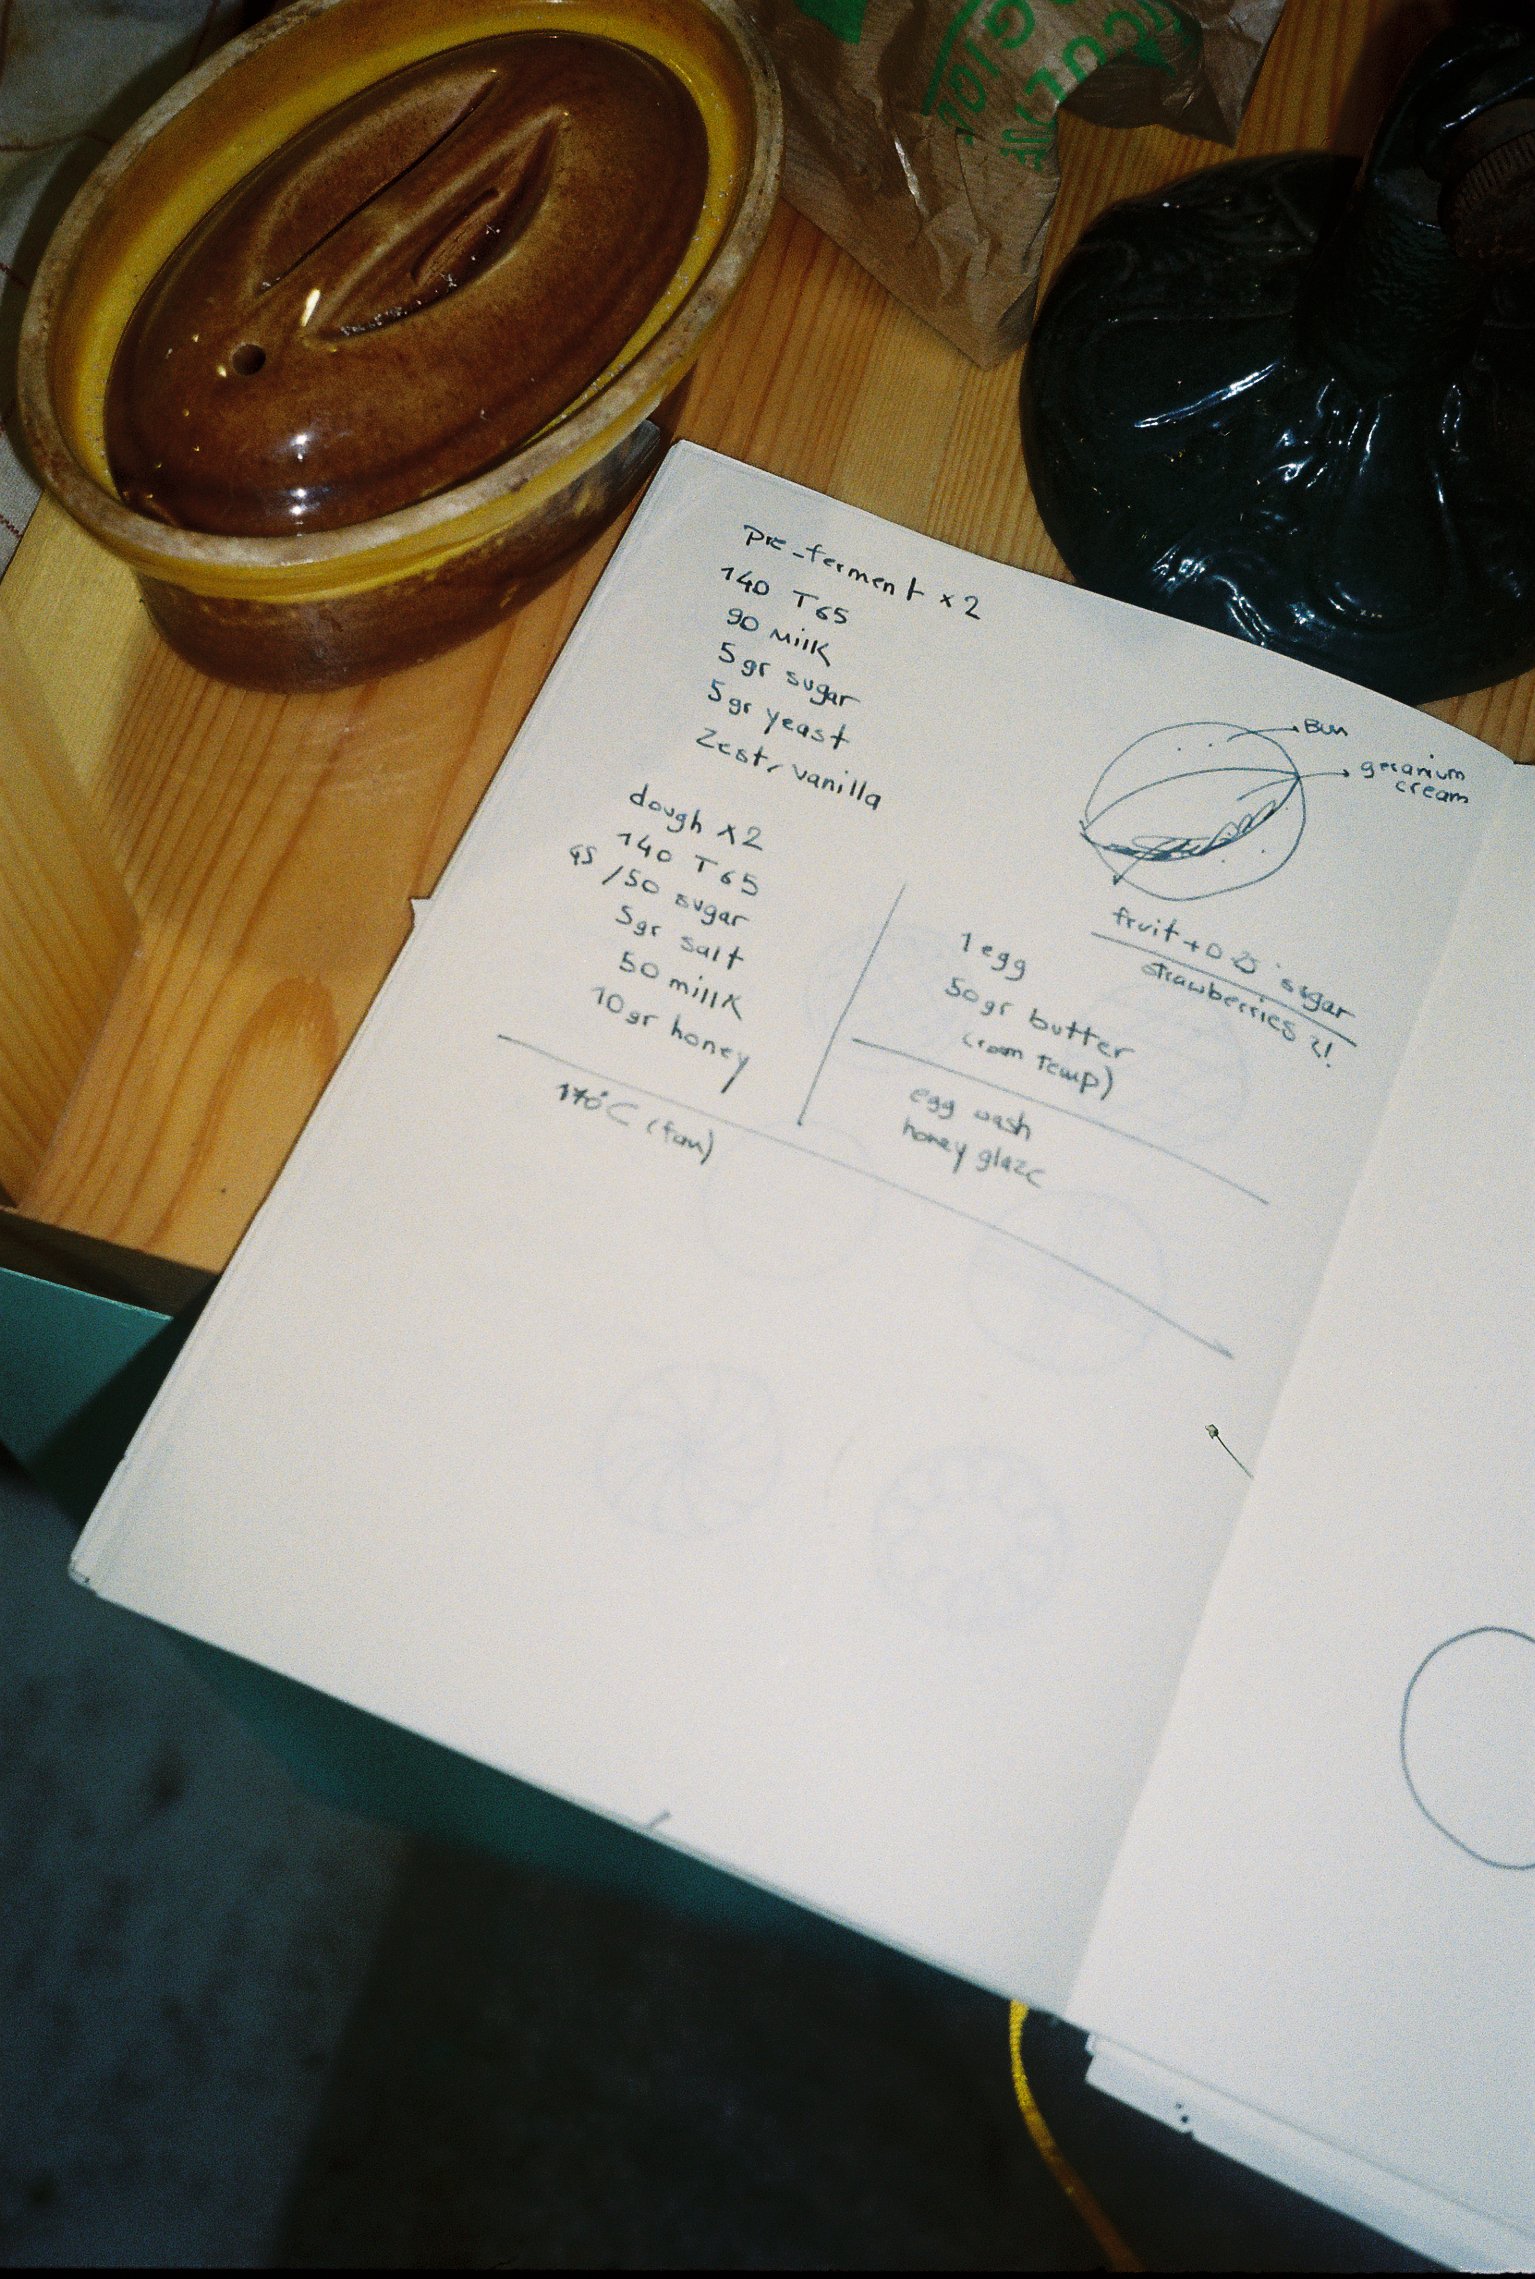 pre-ferment x2
140 T65
90 Milk
5gr sugar
5gr yeast
Zest, vanilla
dough x2
140 T65
45 /50 sugar
5gr salt
50 millk
10gr honey
170°C (fan)
Bun
geranium
cream
fruit + sugar
strawberries ?!
1 egg
50gr butter
(room temp)
egg wash
honey glaze